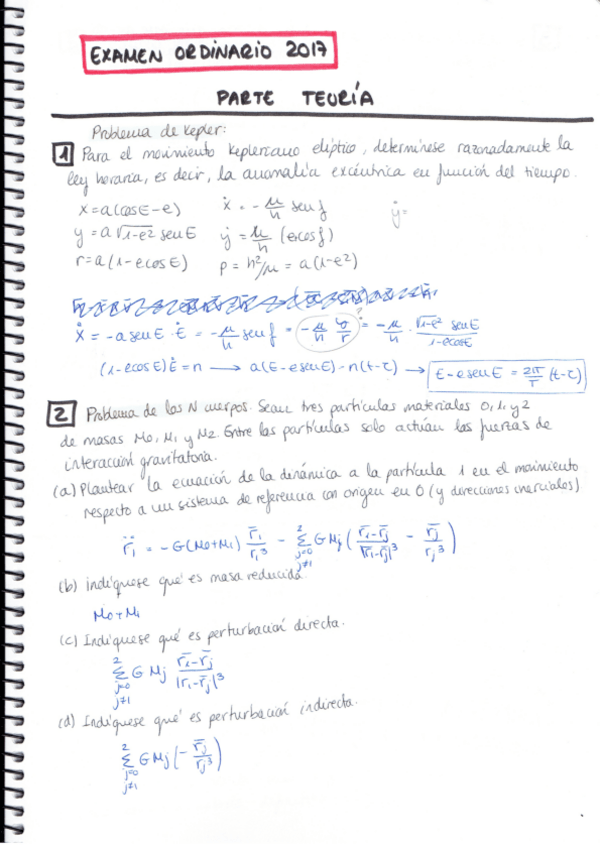 EXAMEN ORDINARIO 2017
PARTE TEORÍA
Problema de Kepler:
1 Para el movimiento Kepleriano elíptico, determínese razonadamente la
ley horaria, es decir, la anomalía excéntrica en función del tiempo.
x = a(cosE - e) ẋ = -μ/h senf ẏ=
y = a√(1-e²) senE ẏ = μ/h (e+cosf)
r = a(1 - ecosE) p = h²/μ = a(1-e²)
ẋ = -a senE · Ė = -μ/h senf = -μ/h y/r = -μ/h · √(1-e²) senE / (1-ecosE)
(1-ecosE)Ė = n → a(E-esenE) = n(t-τ) → E-esenE = 2π/T (t-τ)
2 Problema de los N cuerpos. Sean tres partículas materiales 0, 1, y 2
de masas M0, M1 y M2. Entre las partículas solo actúan las fuerzas de
interacción gravitatoria.
(a) Plantear la ecuación de la dinámica a la partícula 1 en el movimiento
respecto a un sistema de referencia con origen en 0 (y direcciones inerciales)
r̈1 = -G(M0+M1) r̄1/r1³ - Σ(j=0, j≠1)² GMj ( (r̄1-r̄j)/|r̄1-r̄j|³ - r̄j/rj³ )
(b) indíquese qué es masa reducida.
M0+M1
(c) Indíquese qué es perturbación directa.
Σ(j=0, j≠1)² G Mj (r̄1-r̄j)/|r̄1-r̄j|³
(d) Indíquese qué es perturbación indirecta.
Σ(j=0, j≠1)² G Mj (-r̄j/rj³)